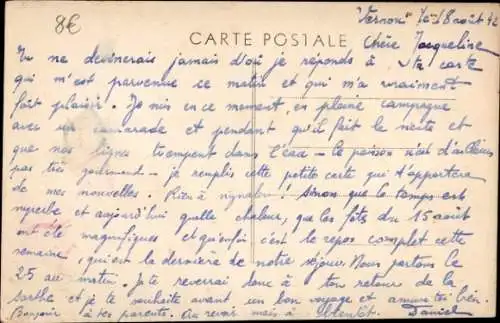 8€
"Vernon" le 18 août 42
CARTE POSTALE
Chère Jacqueline
Tu ne devinerais jamais d'où je réponds à ta carte
qui m'est parvenue ce matin et qui m'a vraiment
fait plaisir. Je suis en ce moment, en pleine campagne
avec un camarade et pendant qu'il fait la sieste et
que nos lignes trempent dans l'eau - le poisson n'est d'ailleurs
pas très gourmand - je remplis cette petite carte qui t'apportera
de mes nouvelles. Rien à signaler! Sinon que le temps est
superbe et aujourd'hui quelle chaleur, que les fêtes du 15 août
ont été magnifiques et qu'enfin c'est le repos complet cette
semaine, qui est la dernière de notre séjour. Nous partons le
25 au matin. Je te reverrai donc à ton retour de la
Sarthe et je te souhaite avant un bon voyage et amuse-toi bien.
Bonjour à tes parents. Au revoir mais à bientôt. Daniel